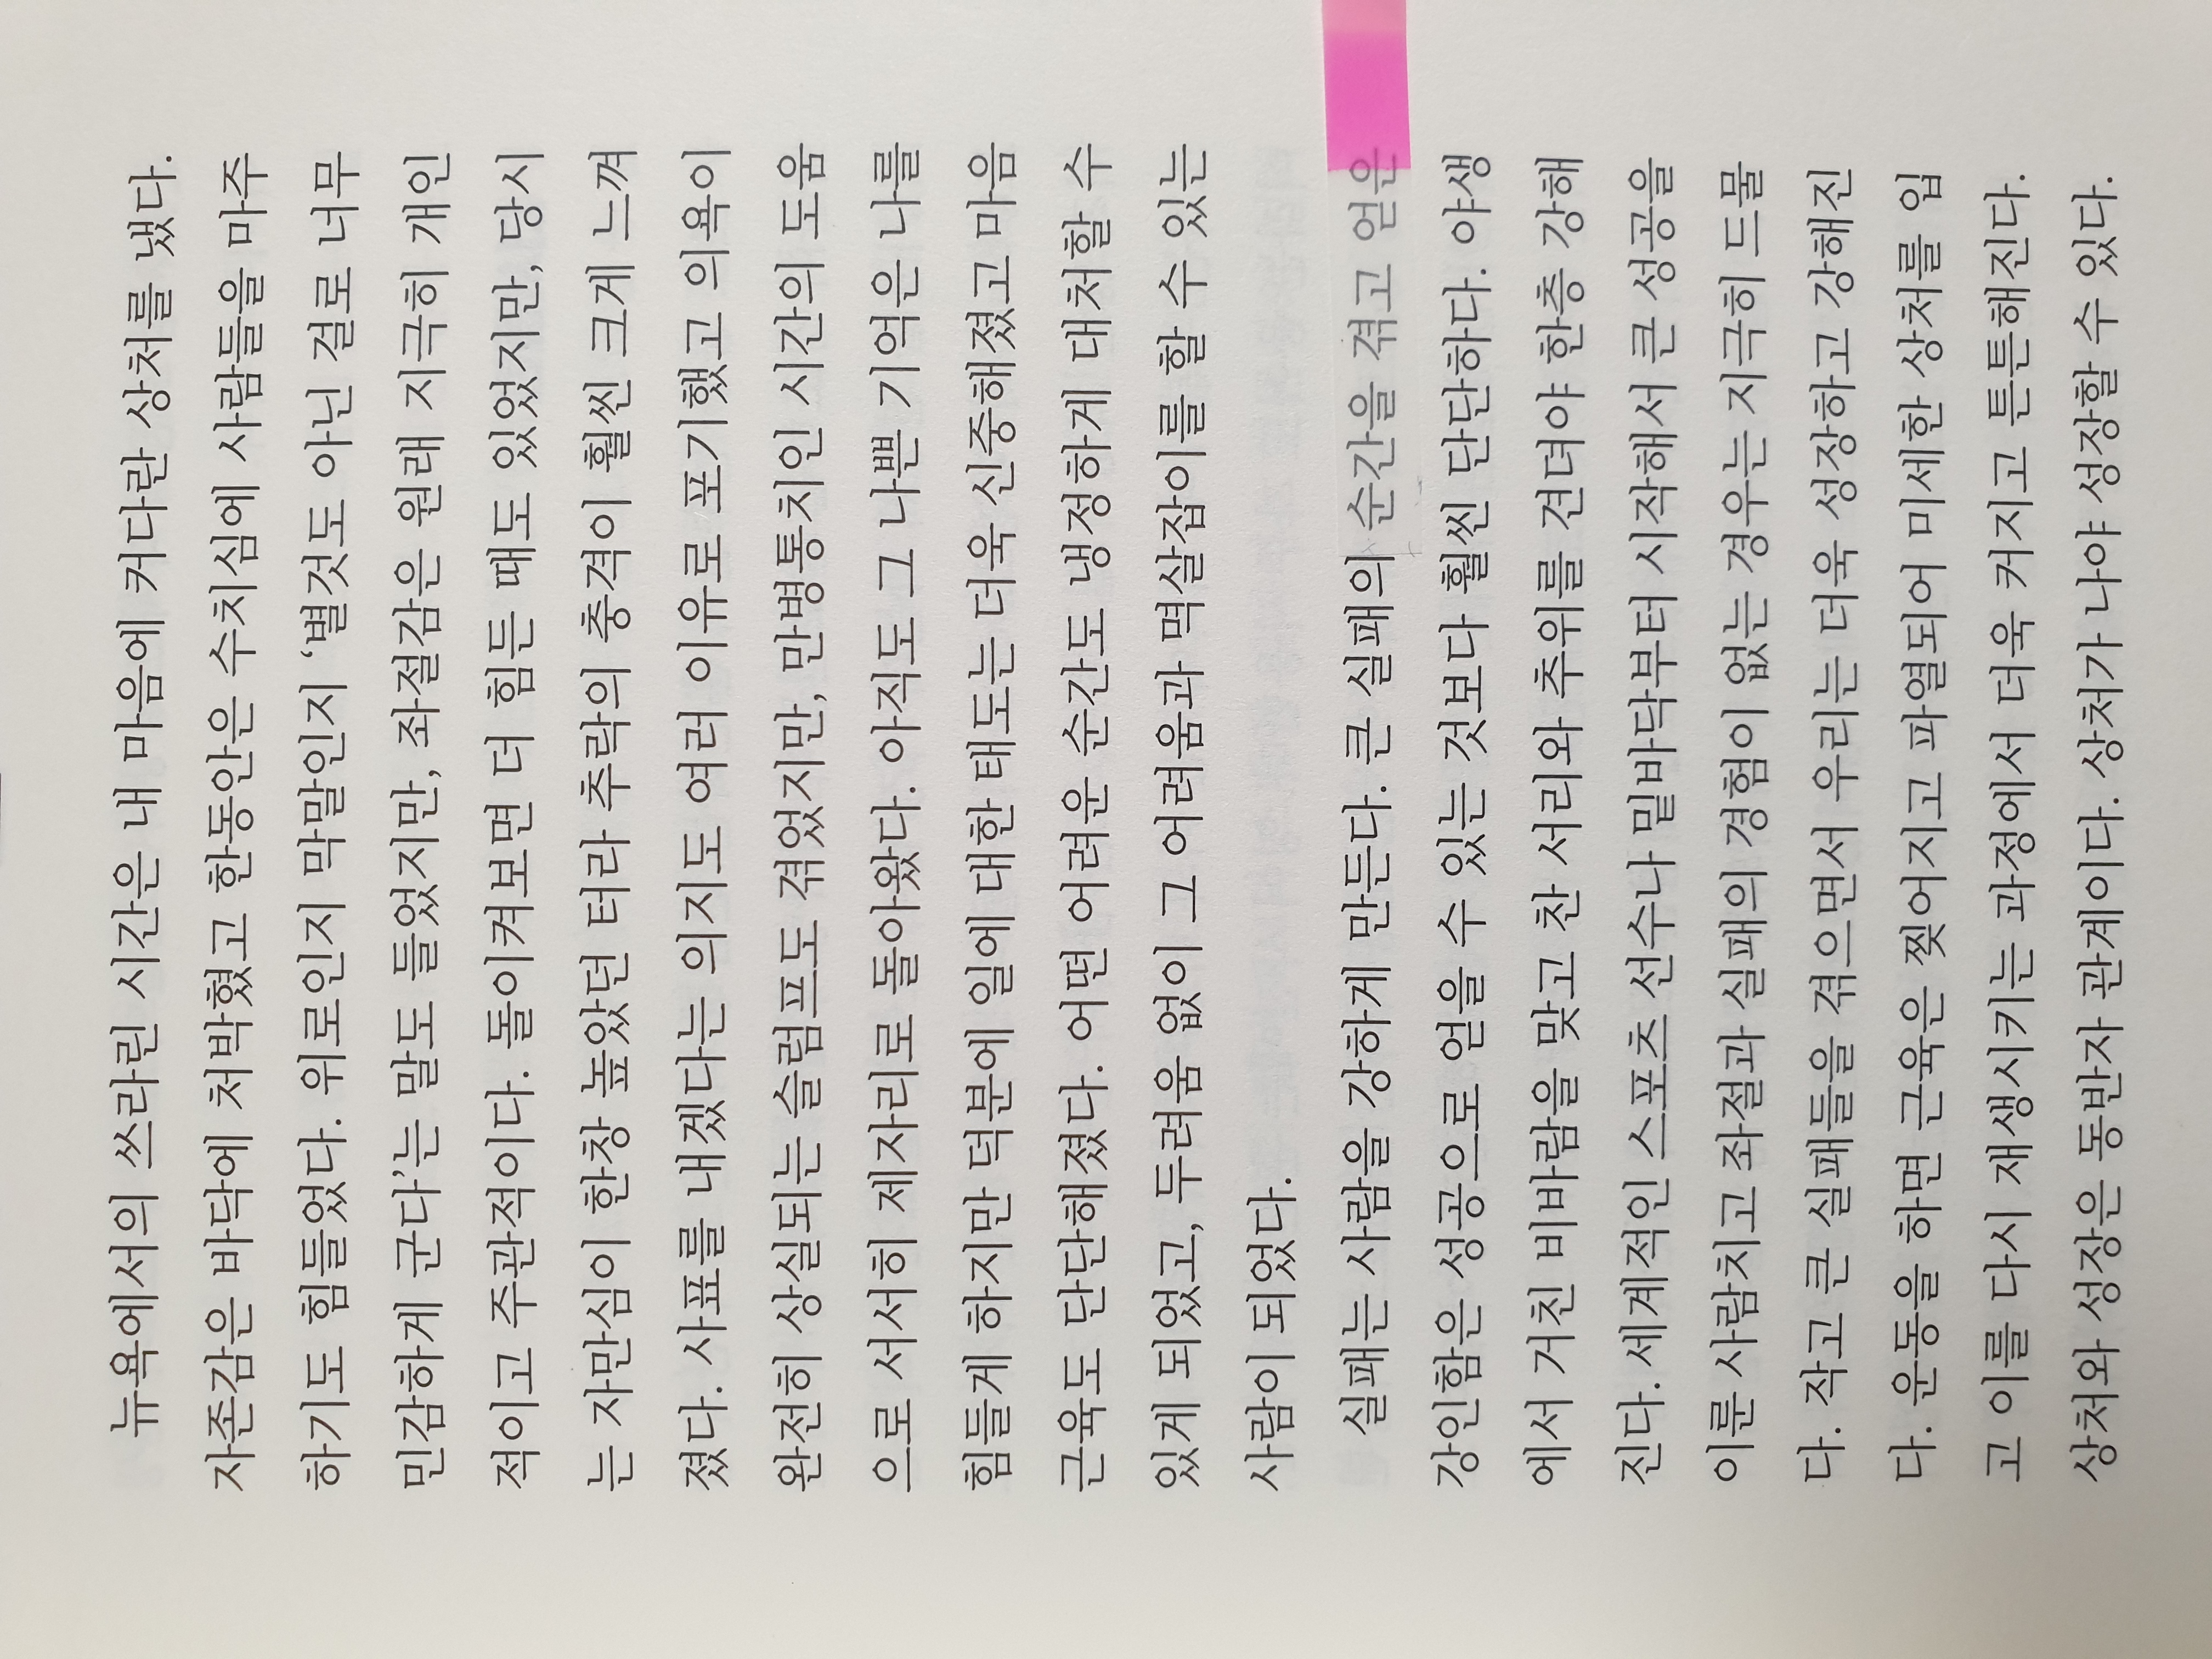 뉴욕에서의 쓰라린 시간은 내 마음에 커다란 상처를 냈다.
자존감은 바닥에 처박혔고 한동안은 수치심에 사람들을 마주
하기도 힘들었다. 위로인지 막말인지 ‘별것도 아닌 걸로 너무
민감하게 군다’는 말도 들었지만, 좌절감은 원래 지극히 개인
적이고 주관적이다. 돌이켜보면 더 힘든 때도 있었지만, 당시
는 자만심이 한창 높았던 터라 추락의 충격이 훨씬 크게 느껴
졌다. 사표를 내겠다는 의지도 여러 이유로 포기했고 의욕이
완전히 상실되는 슬럼프도 겪었지만, 만병통치인 시간의 도움
으로 서서히 제자리로 돌아왔다. 아직도 그 나쁜 기억은 나를
힘들게 하지만 덕분에 일에 대한 태도는 더욱 신중해졌고 마음
근육도 단단해졌다. 어떤 어려운 순간도 냉정하게 대처할 수
있게 되었고, 두려움 없이 그 어려움과 멱살잡이를 할 수 있는
사람이 되었다.
실패는 사람을 강하게 만든다. 큰 실패의 순간을 겪고 얻은
강인함은 성공으로 얻을 수 있는 것보다 훨씬 단단하다. 야생
에서 거친 비바람을 맞고 찬 서리와 추위를 견뎌야 한층 강해
진다. 세계적인 스포츠 선수나 밑바닥부터 시작해서 큰 성공을
이룬 사람치고 좌절과 실패의 경험이 없는 경우는 지극히 드물
다. 작고 큰 실패들을 겪으면서 우리는 더욱 성장하고 강해진
다. 운동을 하면 근육은 찢어지고 파열되어 미세한 상처를 입
고 이를 다시 재생시키는 과정에서 더욱 커지고 튼튼해진다.
상처와 성장은 동반자 관계이다. 상처가 나야 성장할 수 있다.